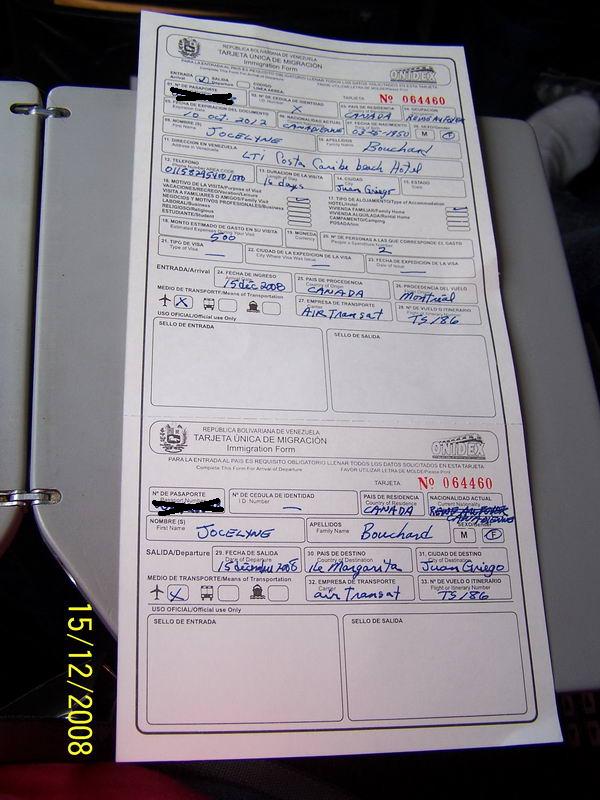 REPÚBLICA BOLIVARIANA DE VENEZUELA
TARJETA ÚNICA DE MIGRACIÓN
Immigration Form
ONIDEX
PARA LA ENTRADA AL PAIS ES REQUISITO OBLIGATORIO LLENAR TODOS LOS DATOS SOLICITADOS EN ESTA TARJETA
ENTRADA Arrival SALIDA Departure
TARJETA Nº 064460
Nº DE PASAPORTE Nº DE CEDULA DE IDENTIDAD PAIS DE RESIDENCIA OCUPACION
X CANADA
FECHA DE EXPIRACION DEL DOCUMENTO NACIONALIDAD ACTUAL FECHA DE NACIMIENTO
10 oct. 2012 CANADIENNE 03-5-1950 M F
09. NOMBRE (S) First Name APELLIDOS Family Name
JOCELYNE Bouchard
11. DIRECCION EN VENEZUELA
Address in Venezuela
LTI Costa Caribe beach Hotel
12. TELEFONO 13. DURACION DE LA VISITA 14. CIUDAD 15. ESTADO
16 days Juan Griego
16. MOTIVO DE LA VISITA/Purpose of Visit 17. TIPO DE ALOJAMIENTO/Type of Accommodation
VACACIONES/RECREO/Vacation/Leisure HOTEL/Hotel
VISITA A FAMILIARES O AMIGOS/Family Visit VIVIENDA FAMILIAR/Family Home
NEGOCIOS Y MOTIVOS PROFESIONALES/Business VIVIENDA ALQUILADA/Rental Home
LABORAL/Business CAMPAMENTO/Camping
RELIGIOSO/Religion POSADA/Inn
ESTUDIANTE/Student
18. MONTO ESTIMADO DE GASTO EN SU VISITA 19. MONEDA 20. Nº DE PERSONAS A LAS QUE CORRESPONDE EL GASTO
Estimated Expenses During Your Visit Currency
500 2
21. TIPO DE VISA 22. CIUDAD DE LA EXPEDICION DE LA VISA 23. FECHA DE EXPEDICION DE LA VISA
Type of Visa City Where Visa Was Issued Date of Issue
ENTRADA/Arrival 24. FECHA DE INGRESO 25. PAIS DE PROCEDENCIA 26. PROCEDENCIA DEL VUELO
15 déc 2008 CANADA Montréal
MEDIO DE TRANSPORTE/Means of Transportation 27. EMPRESA DE TRANSPORTE 28. Nº DE VUELO O ITINERARIO
X AIR Transat TS/86
USO OFICIAL/Official use Only
SELLO DE ENTRADA SELLO DE SALIDA
REPÚBLICA BOLIVARIANA DE VENEZUELA
TARJETA ÚNICA DE MIGRACIÓN
Immigration Form
ONIDEX
PARA LA ENTRADA AL PAIS ES REQUISITO OBLIGATORIO LLENAR TODOS LOS DATOS SOLICITADOS EN ESTA TARJETA
Complete This Form For Arrival of Departure FAVOR UTILIZAR LETRA DE MOLDE/Please Print
TARJETA Nº 064460
Nº DE PASAPORTE Nº DE CEDULA DE IDENTIDAD PAIS DE RESIDENCIA NACIONALIDAD ACTUAL
Passport Number I.D. Number Country of Residence Current Nationality
CANADA
NOMBRE (S) First Name APELLIDOS Family Name
JOCELYNE Bouchard M F
SALIDA/Departure 29. FECHA DE SALIDA 30. PAIS DE DESTINO 31. CIUDAD DE DESTINO
Date of Departure Country of Destination City of Destination
Ile Margarita Juan Griego
MEDIO DE TRANSPORTE/Means of Transportation 32. EMPRESA DE TRANSPORTE 33. Nº DE VUELO O ITINERARIO
Carrier Flight or Itinerary Number
X air Transat TS/86
USO OFICIAL/Official use Only
SELLO DE ENTRADA SELLO DE SALIDA
15/12/2008